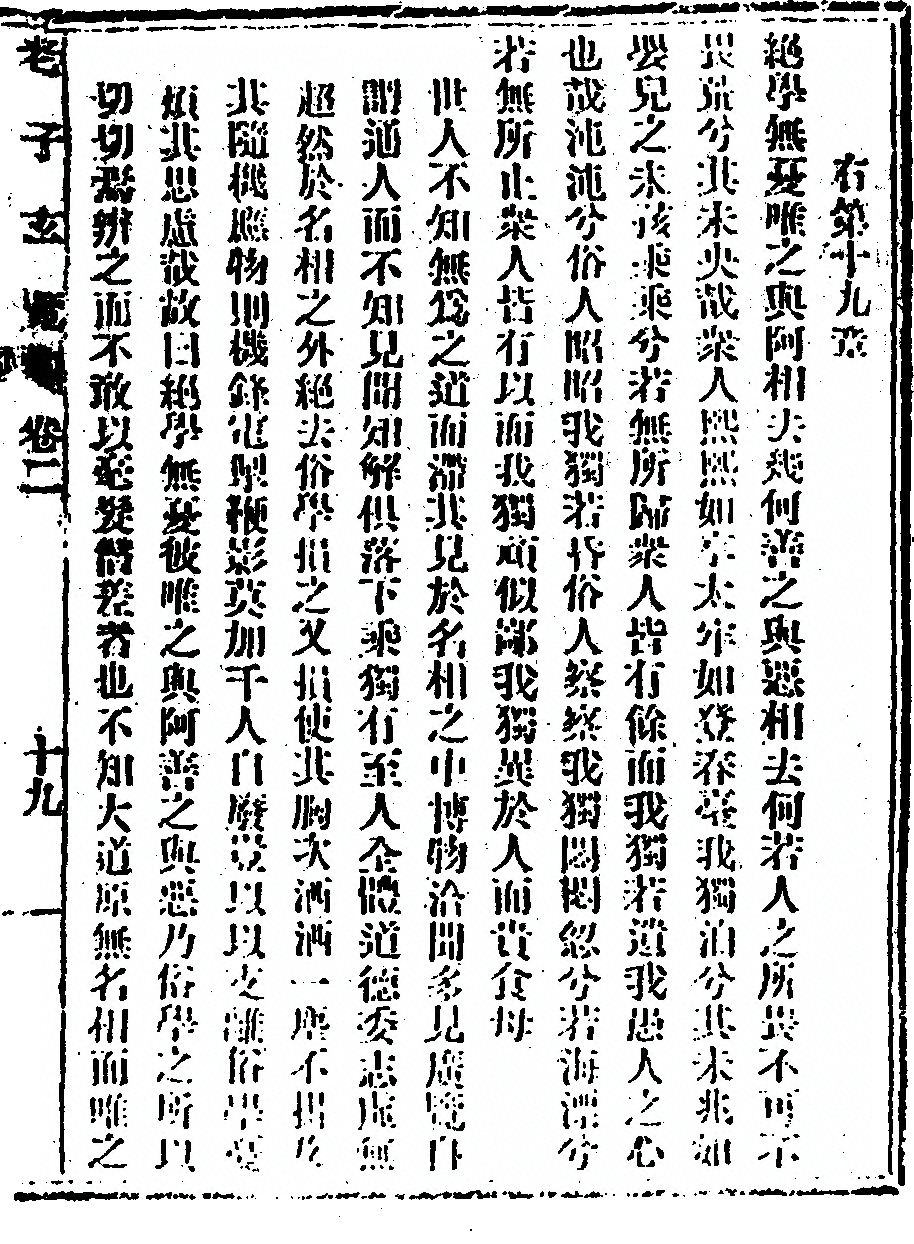 右第十九章
絕學無憂唯之與阿相去幾何善之與惡相去何若人之所畏不可不
畏荒兮其未央哉衆人熙熙如享太牢如登春臺我獨泊兮其未兆如
嬰兒之未孩乘乘兮若無所歸衆人皆有餘而我獨若遺我愚人之心
也哉沌沌兮俗人昭昭我獨若昏俗人察察我獨悶悶忽兮若海漂兮
若無所止衆人皆有以而我獨頑似鄙我獨異於人而貴食母
世人不知無爲之道而滯其見於名相之中博物洽聞多見廣覽自
謂通人而不知見聞知解俱落下乘獨有至人全體道德委志虛無
超然於名相之外絕去俗學損之又損使其胸次洒洒一塵不掛及
其隨機應物則機鋒電掣鞭影莫加千人自廢是以以支離俗學
煩其思慮哉故曰絕學無憂彼唯之與阿善之與惡乃俗學之所以
切切辨之而不敢以毫髮僭差者也不知大道原無名相而唯之
老子玄覽 卷二 十九